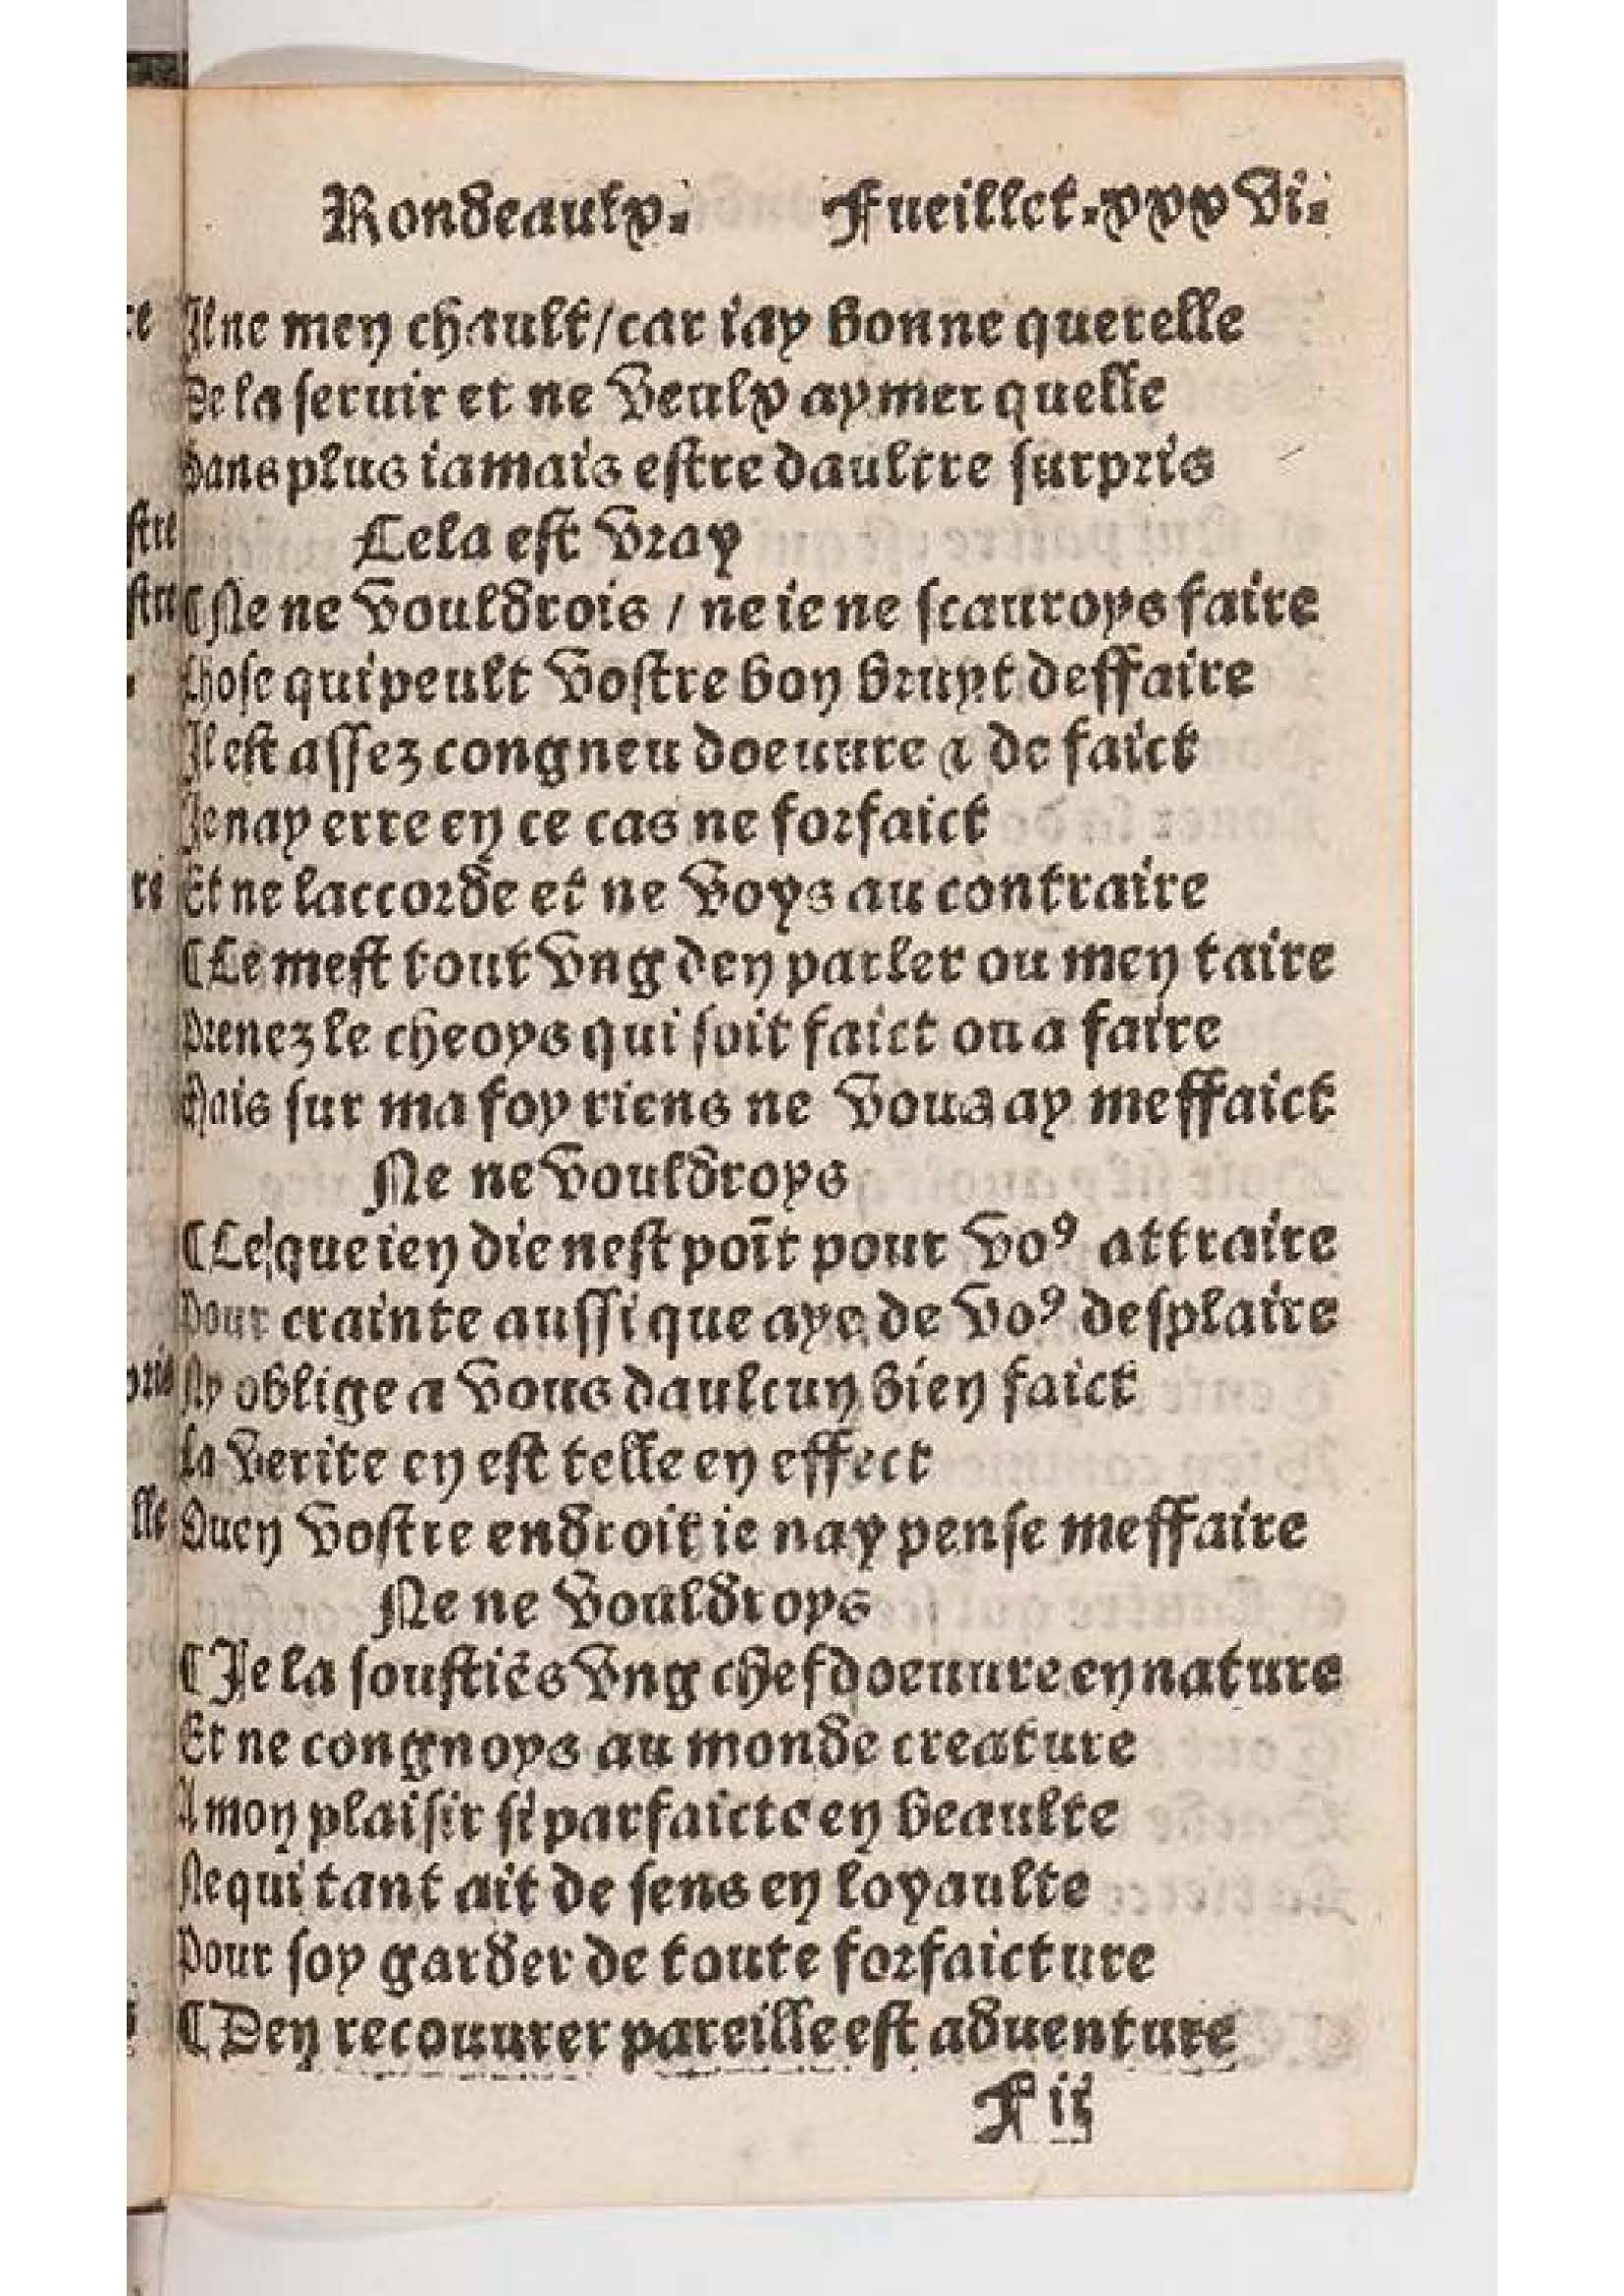 Rondeaulx. Fueillet.xxxvi.
Il ne men chault/car iay bonne querelle
De la seruir et ne veulx aymer quelle
Sans plus iamais estre daultre surpris
Cela est vray
¶ Ne ne vouldrois / ne ie ne scauroys faire
Chose qui peult vostre bon bruyt deffaire
Il est assez congneu doeuure & de faict
Ie nay erre en ce cas ne forfaict
Et ne laccorde et ne voys au contraire
¶ Ce mest tout vng den parler ou men taire
Prenez le cheoys qui soit faict ou a faire
Mais sur ma foy riens ne vous ay meffaict
Ne ne vouldroys
¶ Ce que ien die nest poĩt pour voꝰ attraire
Pour crainte aussi que aye de voꝰ desplaire
Ny oblige a vous daulcun bien faict
La verite en est telle en effect
Quen vostre endroit ie nay pense meffaire
Ne ne vouldroys
¶ Ie la soustiẽs vng chef doeuure en nature
Et ne congnoys au monde creature
A mon plaisir si parfaicte en beaulte
Ne qui tant ait de sens en loyaulte
Pour soy garder de toute forfaicture
¶ Den recouurer pareille est aduenture
F ii